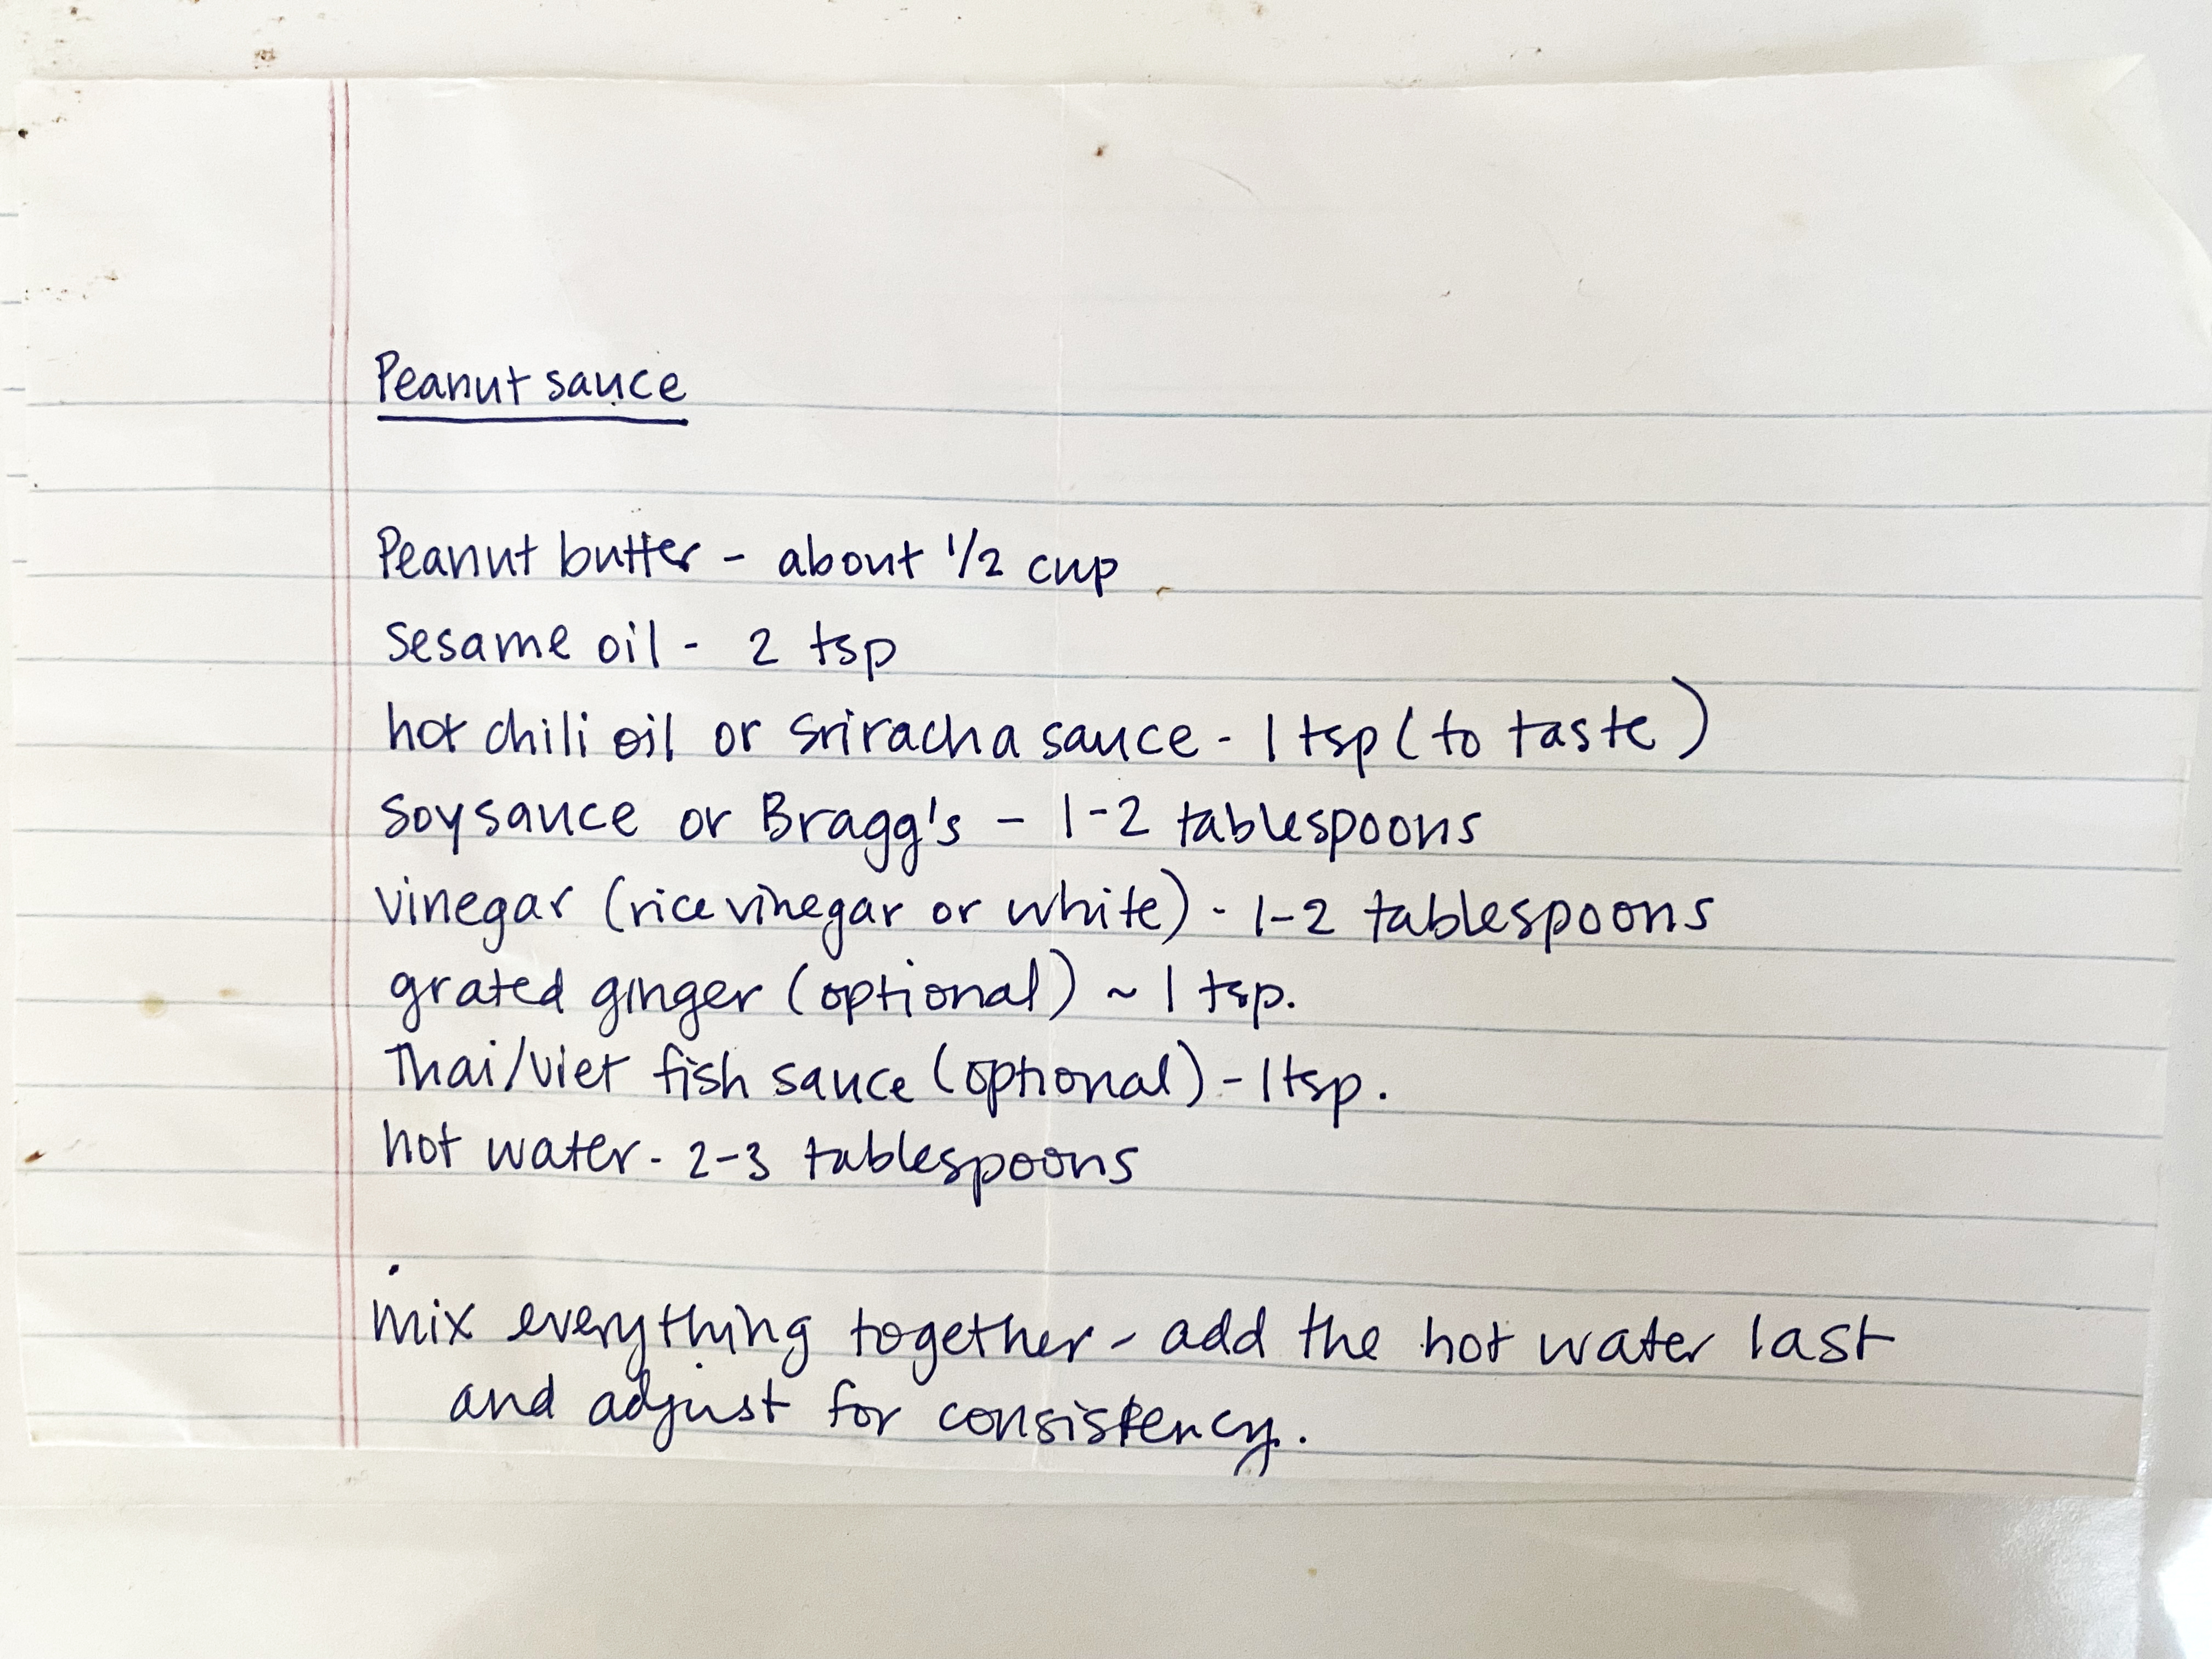 Peanut sauce
Peanut butter - about 1/2 cup
sesame oil - 2 tsp
hot chili oil or sriracha sauce - 1 tsp (to taste)
soysauce or Bragg's - 1-2 tablespoons
vinegar (rice vinegar or white) - 1-2 tablespoons
grated ginger (optional) ~ 1 tsp.
Thai/Viet fish sauce (optional) - 1 tsp.
hot water - 2-3 tablespoons
mix everything together - add the hot water last
and adjust for consistency.